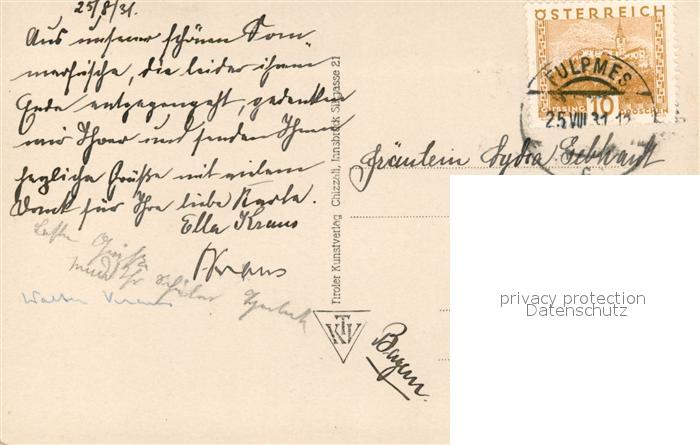 25/8/31.
Aus unserer schönen Som-
merfrische, die leider ihrem
Ende entgegengeht, gedenken
wir Ihrer und senden Ihnen
herzliche Grüße mit vielem
Dank für Ihre liebe Karte.
Ella Kraus
Kraus
Walter Kraus
Tiroler Kunstverlag Chizzali, Innsbruck, Sillgasse 21
TKV
ÖSTERREICH
10
GROSCHEN
FULPMES
25.VIII.31
Fräulein Lydia Gebhardt
Bayern.
privacy protection
Datenschutz